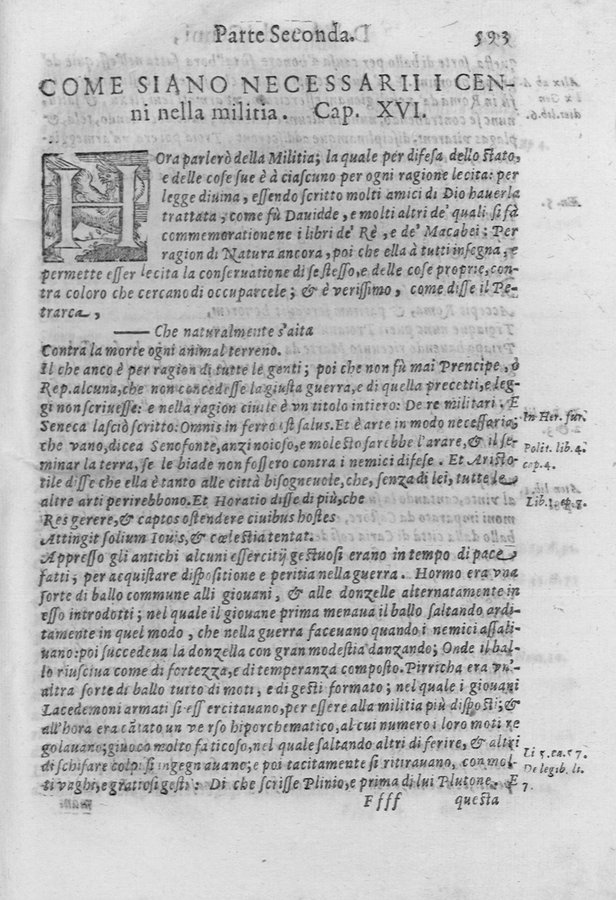 Parte Seconda. 593
COME SIANO NECESSARII I CEN-
ni nella militia. Cap. XVI.
HOra parlerò della Militia; la quale per difesa dello stato,
e delle cose sue è à ciascuno per ogni ragione lecita: per
legge diuina, essendo scritto molti amici di Dio hauerla
trattata, come fù Dauidde, e molti altri de' quali si fà
commemoratione ne i libri de' Rè, e de' Macabei; Per
ragion di Natura ancora, poi che ella à tutti insegna, e
permette esser lecita la conseruatione di se stesso, e delle cose proprie, con-
tra coloro che cercano di occuparcele; & è verissimo, come disse il Pe-
trarca,
—— Che naturalmente s'aita
Contra la morte ogni animal terreno.
Il che anco è per ragion di tutte le genti; poi che non fù mai Prencipe, ò
Rep. alcuna, che non concedesse la giusta guerra, e di quella precetti, e leg-
gi non scriuesse: e nella ragion ciuile è vn titolo intiero: De re militari. E
Seneca lasciò scritto: Omnis in ferro est salus. Et è arte in modo necessaria,
In Her. fur.
che vano, dicea Senofonte, anzi noioso, e molesto sarebbe l'arare, & il se-
minar la terra, se le biade non fossero contra i nemici difese. Et Aristo-
Polit. lib. 4.
cap. 4.
tile disse che ella è tanto alle città bisogneuole, che, senza di lei, tutte le
altre arti perirebbono. Et Horatio disse di più, che
Lib. 1. ep. 7.
Res gerere, & captos ostendere ciuibus hostes
Attingit solium Iouis, & cælestia tentat.
Appresso gli antichi alcuni essercitij gestuosi erano in tempo di pace
fatti, per acquistare dispositione e peritia nella guerra. Hormo era vna
sorte di ballo commune alli giouani, & alle donzelle alternatamente in
esso introdotti; nel quale il giouane prima menaua il ballo saltando ardi-
tamente in quel modo, che nella guerra faceuano quando i nemici assali-
uano: poi succedeua la donzella con gran modestia danzando; Onde il bal-
lo riusciua come di fortezza, e di temperanza composto. Pirricha era vn'
altra sorte di ballo tutto di moti, e di gesti formato; nel quale i giouani
Lacedemoni armati si essercitauano, per essere alla militia più disposti; &
all'hora era cātato un verso hiporchematico, al cui numero i loro moti re
golauano; giuoco molto faticoso, nel quale saltando altri di ferire, & altri
di schifare colpi si ingegnauano; e poi tacitamente si ritirauano, con mol-
ti vaghi, e grattosi gesti: Di che scrisse Plinio, e prima di lui Plutone. E
Li 5. ca. 57.
De legib. li.
7.
Ffff questa